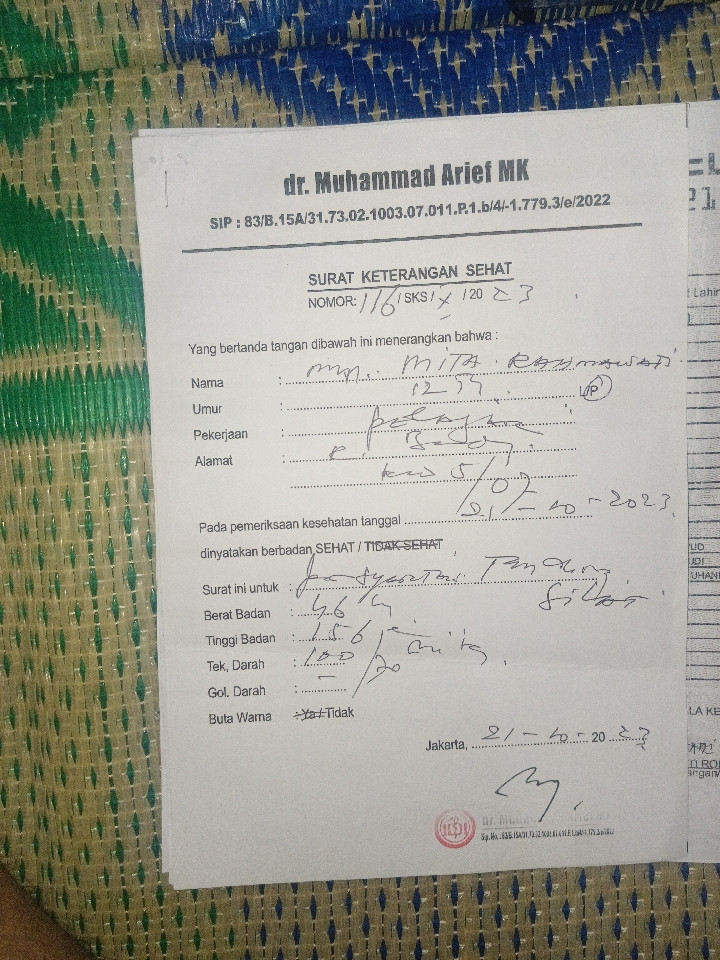 dr. Muhammad Arief MK
SIP : 83/B.15A/31.73.02.1003.07.011.P.1.b/4/-1.779.3/e/2022
SURAT KETERANGAN SEHAT
NOMOR: 116 / SKS / X / 20 23
Yang bertanda tangan dibawah ini menerangkan bahwa :
Nama : MITA RAHMAWATI
Umur : 12 L/P
Pekerjaan : pelajar
Alamat :
5/07
Pada pemeriksaan kesehatan tanggal 21-10-2023
dinyatakan berbadan SEHAT / TIDAK SEHAT
Surat ini untuk : persyaratan Tanding
Silat
Berat Badan : 46 kg
Tinggi Badan : 156
Tek, Darah : 100/70
Gol. Darah : -
Buta Warna : Ya / Tidak
Jakarta, 21-10-2023
Sip. No. : 83/B.15A/31.73.02.1003.07.011.P.1.b/4/-1.779.3/e/2022